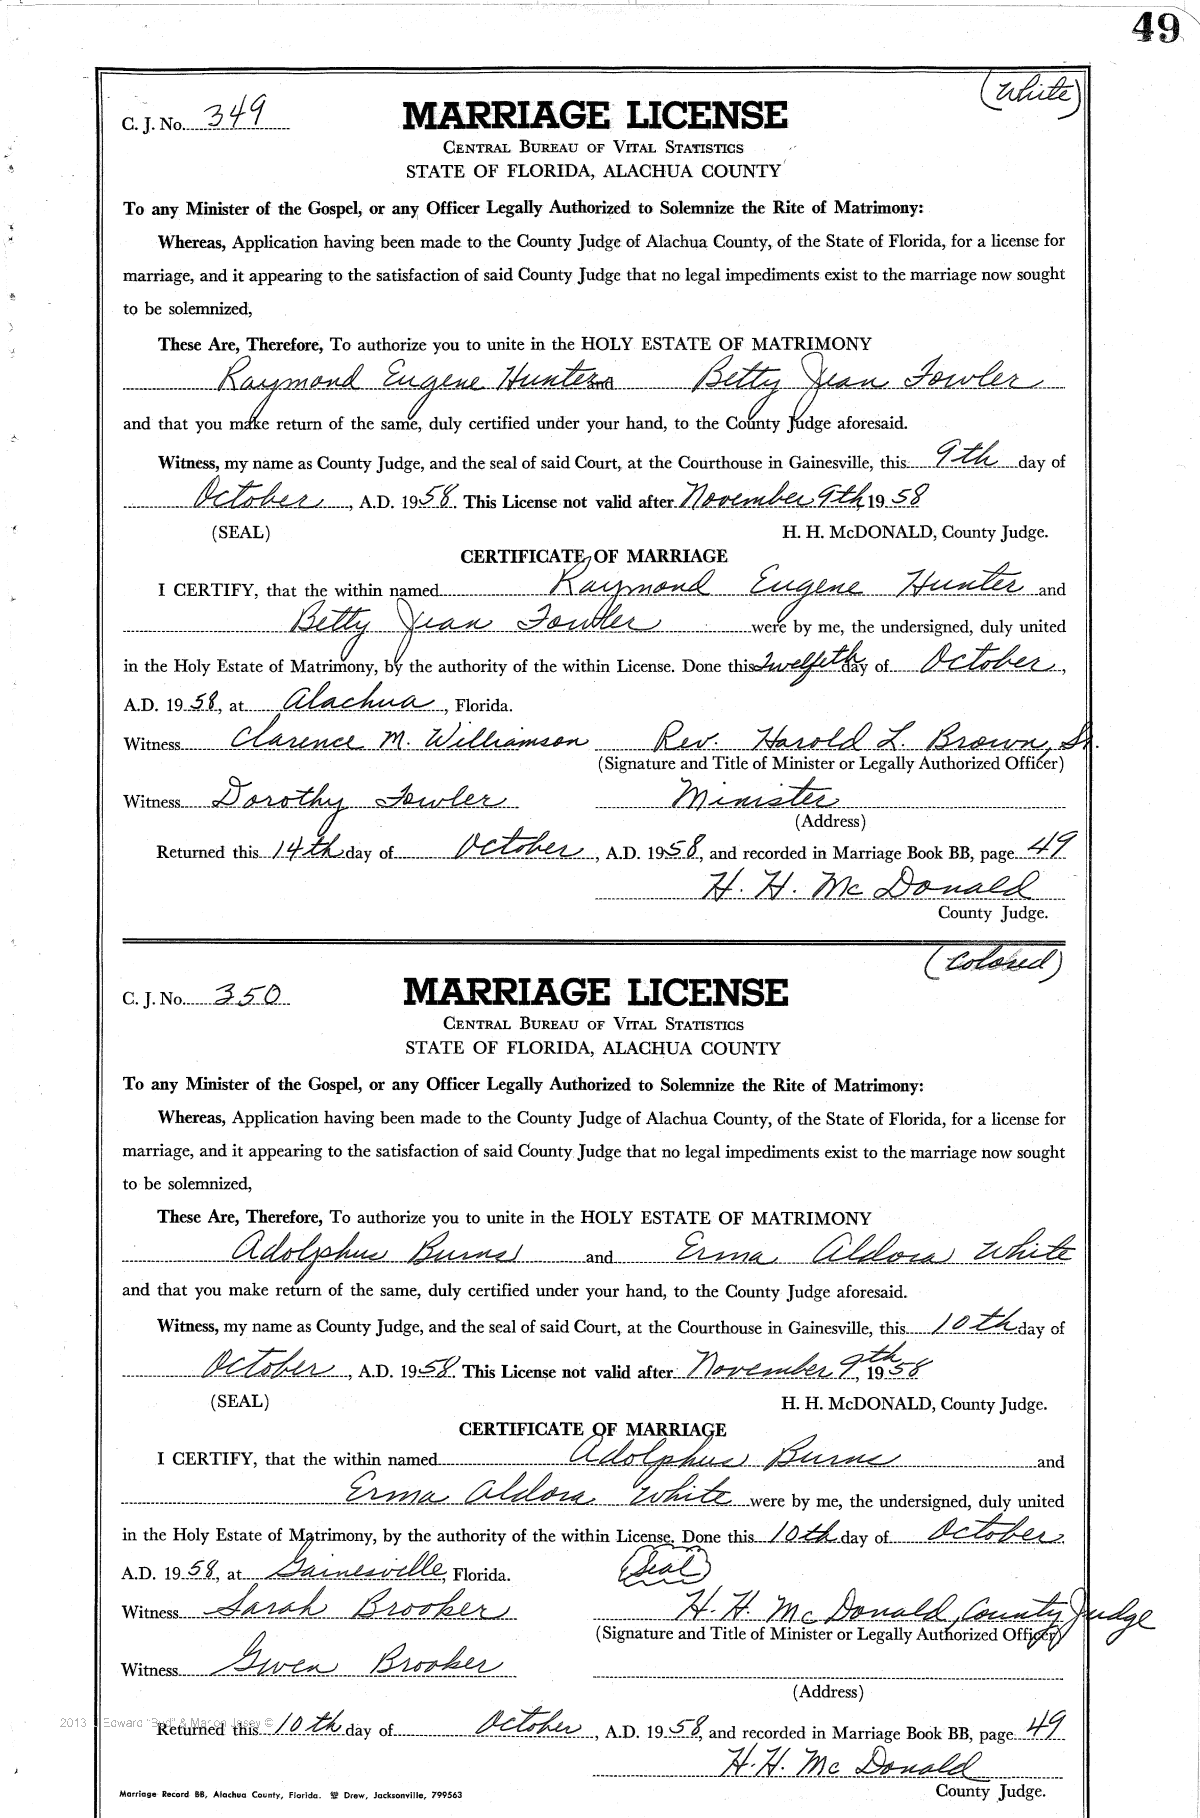 49
(White)
C. J. No. 349
MARRIAGE LICENSE
CENTRAL BUREAU OF VITAL STATISTICS
STATE OF FLORIDA, ALACHUA COUNTY
To any Minister of the Gospel, or any Officer Legally Authorized to Solemnize the Rite of Matrimony:
Whereas, Application having been made to the County Judge of Alachua County, of the State of Florida, for a license for
marriage, and it appearing to the satisfaction of said County Judge that no legal impediments exist to the marriage now sought
to be solemnized,
These Are, Therefore, To authorize you to unite in the HOLY ESTATE OF MATRIMONY
Raymond Eugene Hunter and Betty Jean Fowler
and that you make return of the same, duly certified under your hand, to the County Judge aforesaid.
Witness, my name as County Judge, and the seal of said Court, at the Courthouse in Gainesville, this 9th day of
October, A.D. 1958. This License not valid after November 9th, 1958
(SEAL) H. H. McDONALD, County Judge.
CERTIFICATE OF MARRIAGE
I CERTIFY, that the within named Raymond Eugene Hunter and
Betty Jean Fowler were by me, the undersigned, duly united
in the Holy Estate of Matrimony, by the authority of the within License. Done this Twelfeth day of October,
A.D. 1958, at Alachua, Florida.
Witness Clarence M. Williamson Rev. Harold L. Brown, Sr.
(Signature and Title of Minister or Legally Authorized Officer)
Witness Dorothy Fowler Minister
(Address)
Returned this 14th day of October, A.D. 1958, and recorded in Marriage Book BB, page 49
H. H. McDonald
County Judge.
(Colored)
C. J. No. 350
MARRIAGE LICENSE
CENTRAL BUREAU OF VITAL STATISTICS
STATE OF FLORIDA, ALACHUA COUNTY
To any Minister of the Gospel, or any Officer Legally Authorized to Solemnize the Rite of Matrimony:
Whereas, Application having been made to the County Judge of Alachua County, of the State of Florida, for a license for
marriage, and it appearing to the satisfaction of said County Judge that no legal impediments exist to the marriage now sought
to be solemnized,
These Are, Therefore, To authorize you to unite in the HOLY ESTATE OF MATRIMONY
Adolphus Burns and Erma Aldora White
and that you make return of the same, duly certified under your hand, to the County Judge aforesaid.
Witness, my name as County Judge, and the seal of said Court, at the Courthouse in Gainesville, this 10th day of
October, A.D. 1958. This License not valid after November 9th, 1958
(SEAL) H. H. McDONALD, County Judge.
CERTIFICATE OF MARRIAGE
I CERTIFY, that the within named Adolphus Burns and
Erma Aldora White were by me, the undersigned, duly united
in the Holy Estate of Matrimony, by the authority of the within License. Done this 10th day of October,
A.D. 1958, at Gainesville, Florida. (Seal)
Witness Sarah Brooker H. H. McDonald, County Judge
(Signature and Title of Minister or Legally Authorized Officer)
Witness Gwen Brooker
(Address)
2013 J Edward "Bud" & Marion Josey ©
Returned this 10th day of October, A.D. 1958, and recorded in Marriage Book BB, page 49
H. H. McDonald
County Judge.
Marriage Record BB, Alachua County, Florida. Drew, Jacksonville, 799563